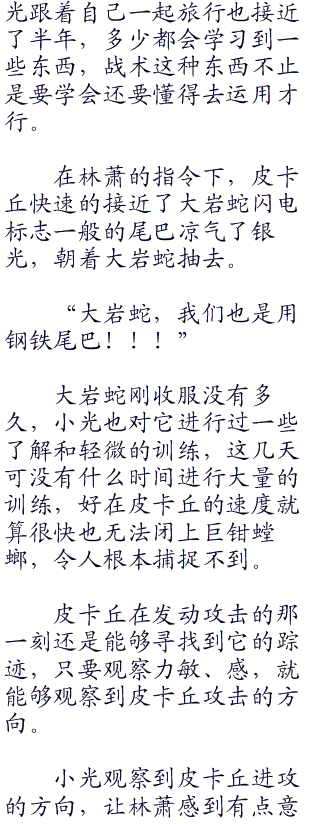 光跟着自己一起旅行也接近
了半年，多少都会学习到一
些东西，战术这种东西不止
是要学会还要懂得去运用才
行。
在林萧的指令下，皮卡
丘快速的接近了大岩蛇闪电
标志一般的尾巴凉气了银
光，朝着大岩蛇抽去。
“大岩蛇，我们也是用
钢铁尾巴！！！”
大岩蛇刚收服没有多
久，小光也对它进行过一些
了解和轻微的训练，这几天
可没有什么时间进行大量的
训练，好在皮卡丘的速度就
算很快也无法闭上巨钳螳
螂，令人根本捕捉不到。
皮卡丘在发动攻击的那
一刻还是能够寻找到它的踪
迹，只要观察力敏、感，就
能够观察到皮卡丘攻击的方
向。
小光观察到皮卡丘进攻
的方向，让林萧感到有点意